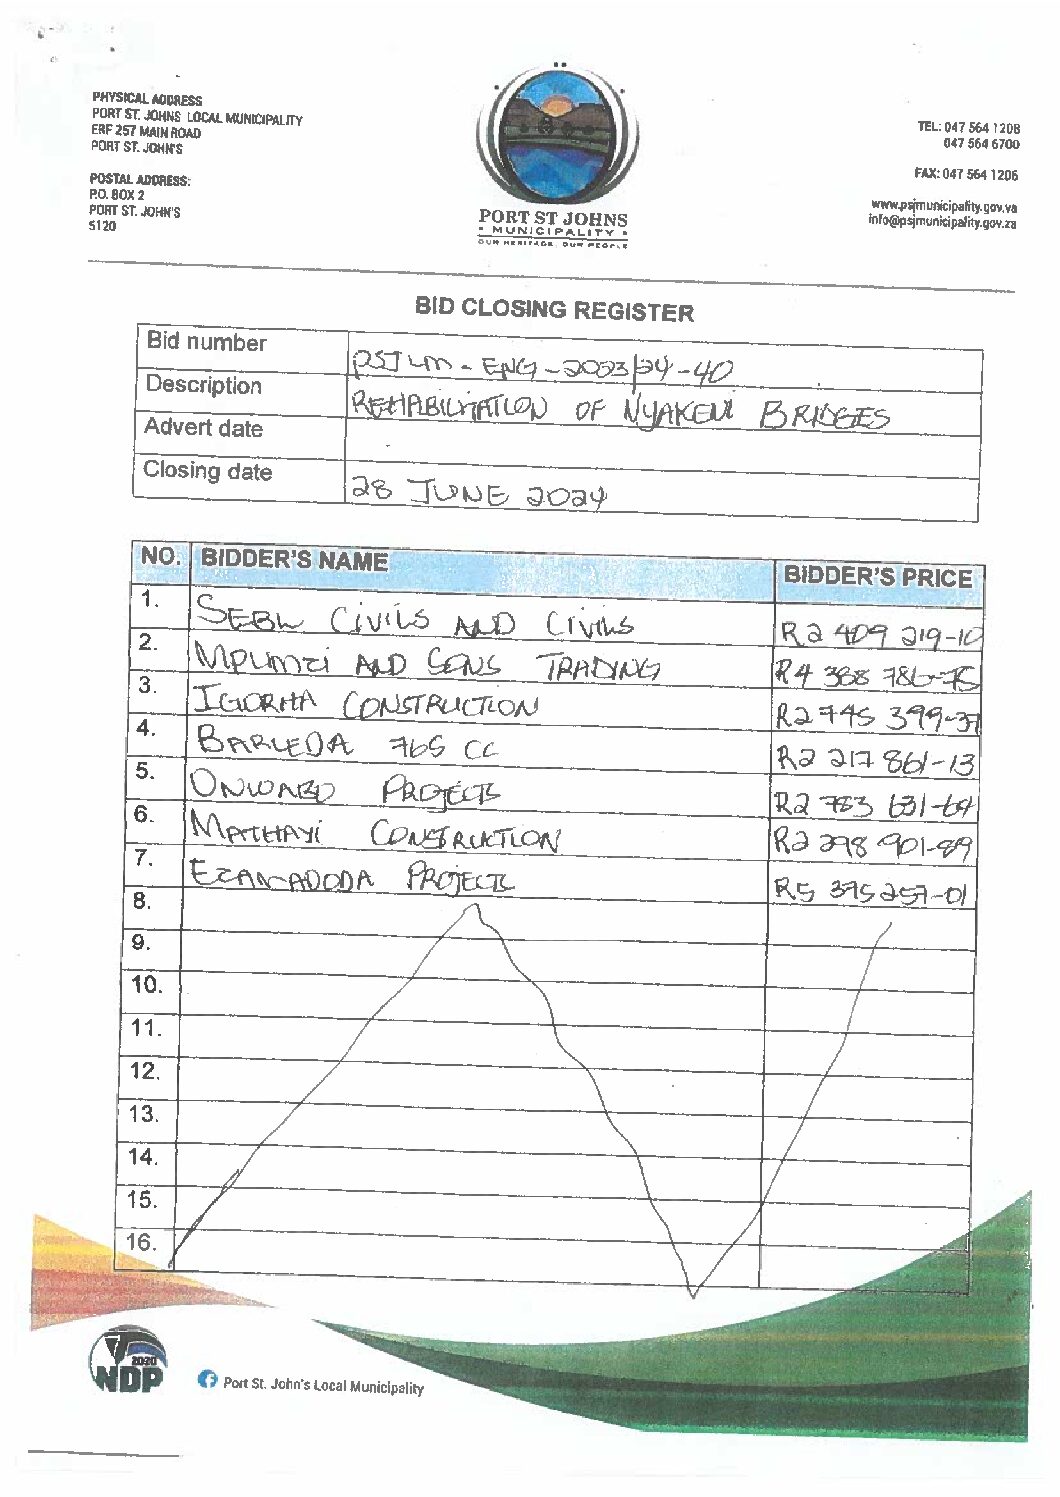 PHYSICAL ADDRESS
PORT ST. JOHNS LOCAL MUNICIPALITY
ERF 257 MAIN ROAD
PORT ST. JOHN'S
POSTAL ADDRESS:
P.O. BOX 2
PORT ST. JOHN'S
5120
PORT ST JOHNS
MUNICIPALITY
OUR HERITAGE, OUR PEOPLE
TEL: 047 564 1208
047 564 6700
FAX: 047 564 1206
www.psjmunicipality.gov.va
info@psjmunicipality.gov.za
BID CLOSING REGISTER
Bid number PSJLM - ENG - 2023/24 - 40
Description REHABILITATION OF NYAKENI BRIDGES
Advert date
Closing date 28 JUNE 2024
NO. BIDDER'S NAME BIDDER'S PRICE
1. CIVILS AND CIVILS R2 409 219-10
2. MPUMZI AND SONS TRADING R4 388 786-75
3. IGORHA CONSTRUCTION R2 745 399-37
4. BARLEDA 765 CC R2 217 861-13
5. PROJECTS R2 783 631-64
6. MATHAYI CONSTRUCTION R2 298 901-89
7. EZAMADODA PROJECTS R5 395 257-01
8.
9.
10.
11.
12.
13.
14.
15.
16.
2020
NDP
Port St. John's Local Municipality